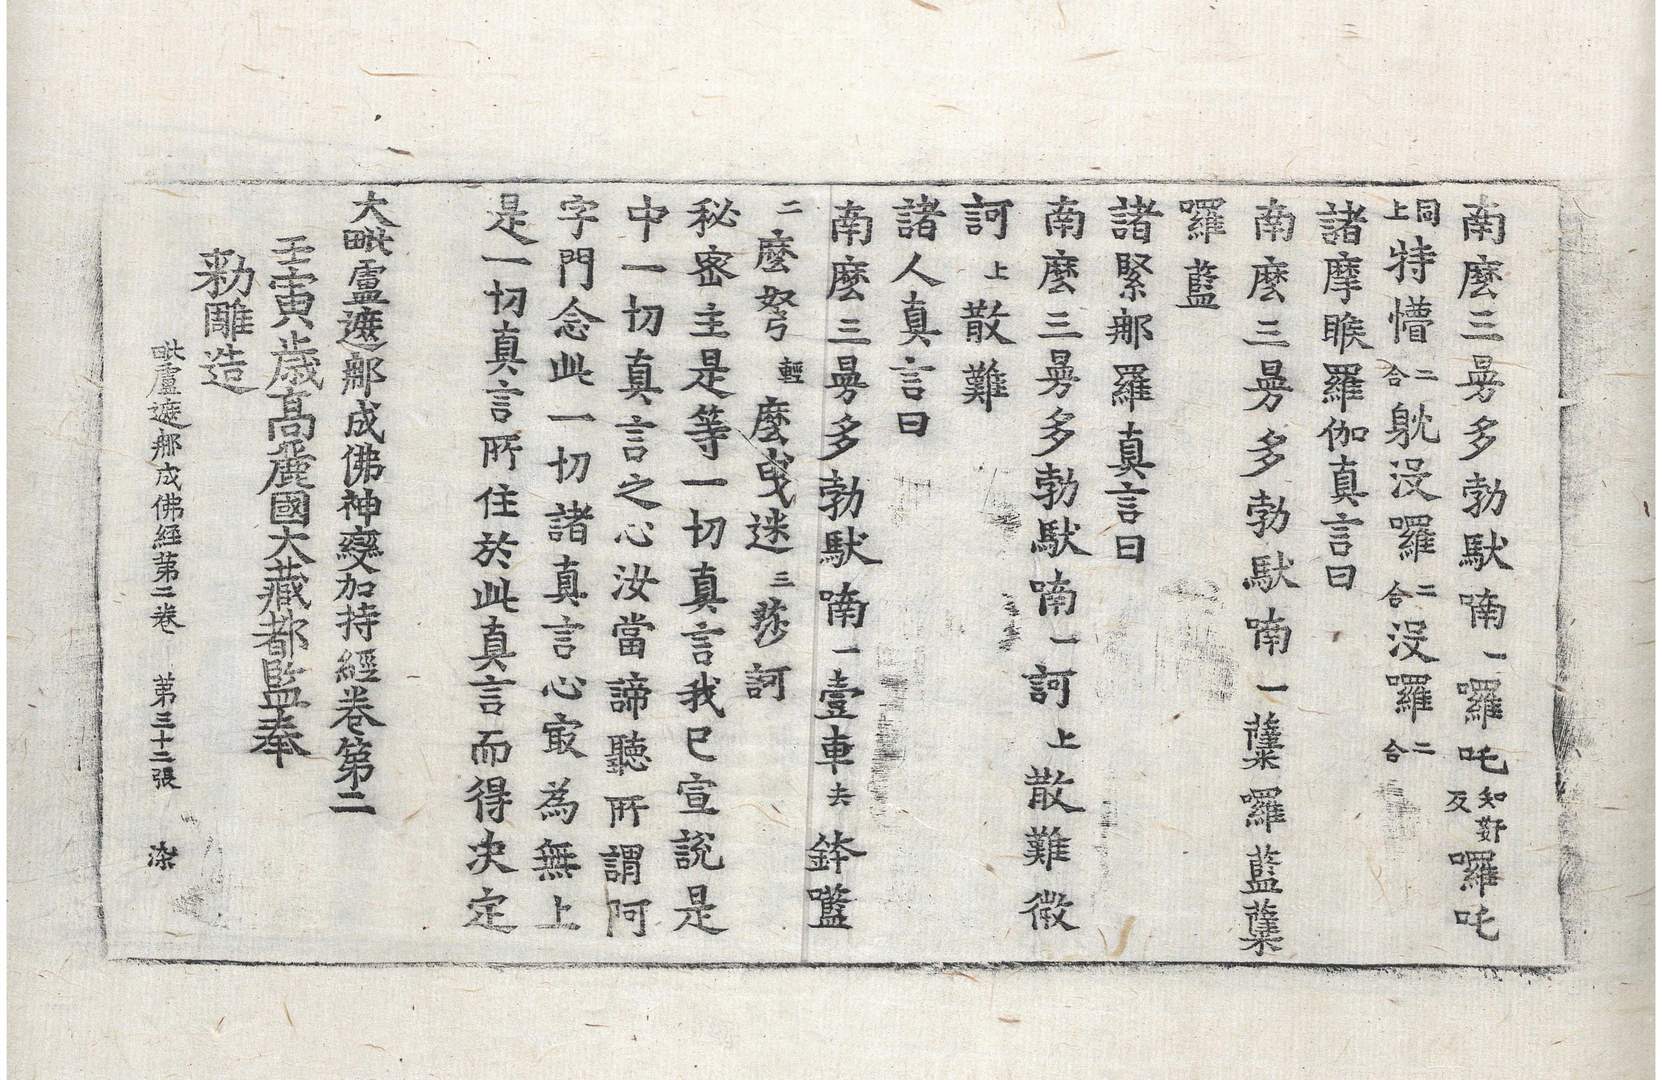 南麽三曼多勃馱喃一囉吒知耕反囉吒
同上特懵二合躭沒囉二合沒囉二合
諸摩睺羅伽真言曰
南麽三曼多勃馱喃一蘖囉藍蘖
囉藍
諸緊那羅真言曰
南麽三曼多勃馱喃一訶上散難微
訶上散難
諸人真言曰
南麽三曼多勃馱喃一壹車去鉢㘕
二麽弩輕麽曳迷三莎訶
秘密主是等一切真言我已宣說是
中一切真言之心汝當諦聽所謂阿
字門念此一切諸真言心㝡為無上
是一切真言所住於此真言而得決定
大毗盧遮那成佛神變加持經卷第二
壬寅歲高麗國大藏都監奉
勑雕造
毗盧遮那成佛經第二卷 第三十二張 染